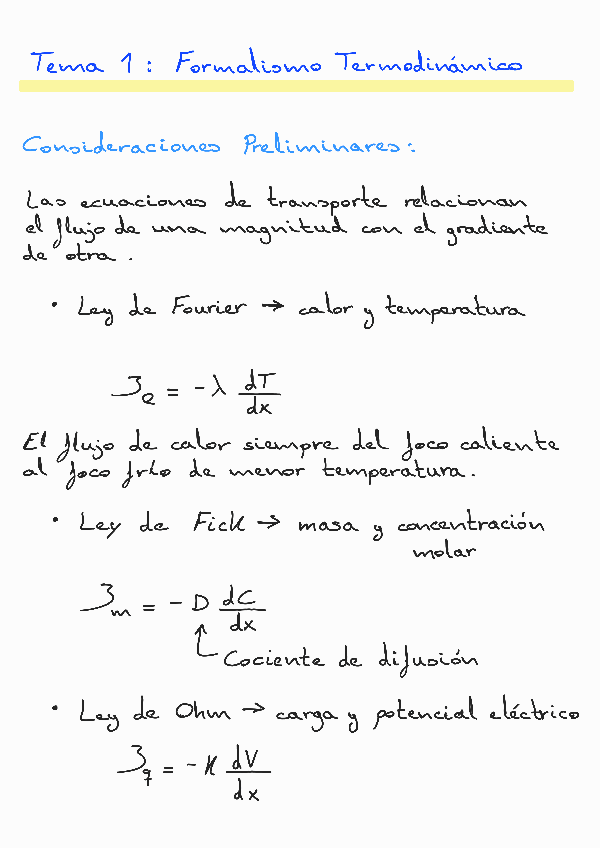 Tema 1: Formalismo Termodinámico
Consideraciones Preliminares:
Las ecuaciones de transporte relacionan
el flujo de una magnitud con el gradiente
de otra.
• Ley de Fourier → calor y temperatura
J_Q = -λ dT/dx
El flujo de calor siempre del foco caliente
al foco frío de menor temperatura.
• Ley de Fick → masa y concentración
molar
J_m = -D dC/dx
Cociente de difusión
• Ley de Ohm → carga y potencial eléctrico
J_q = -K dV/dx